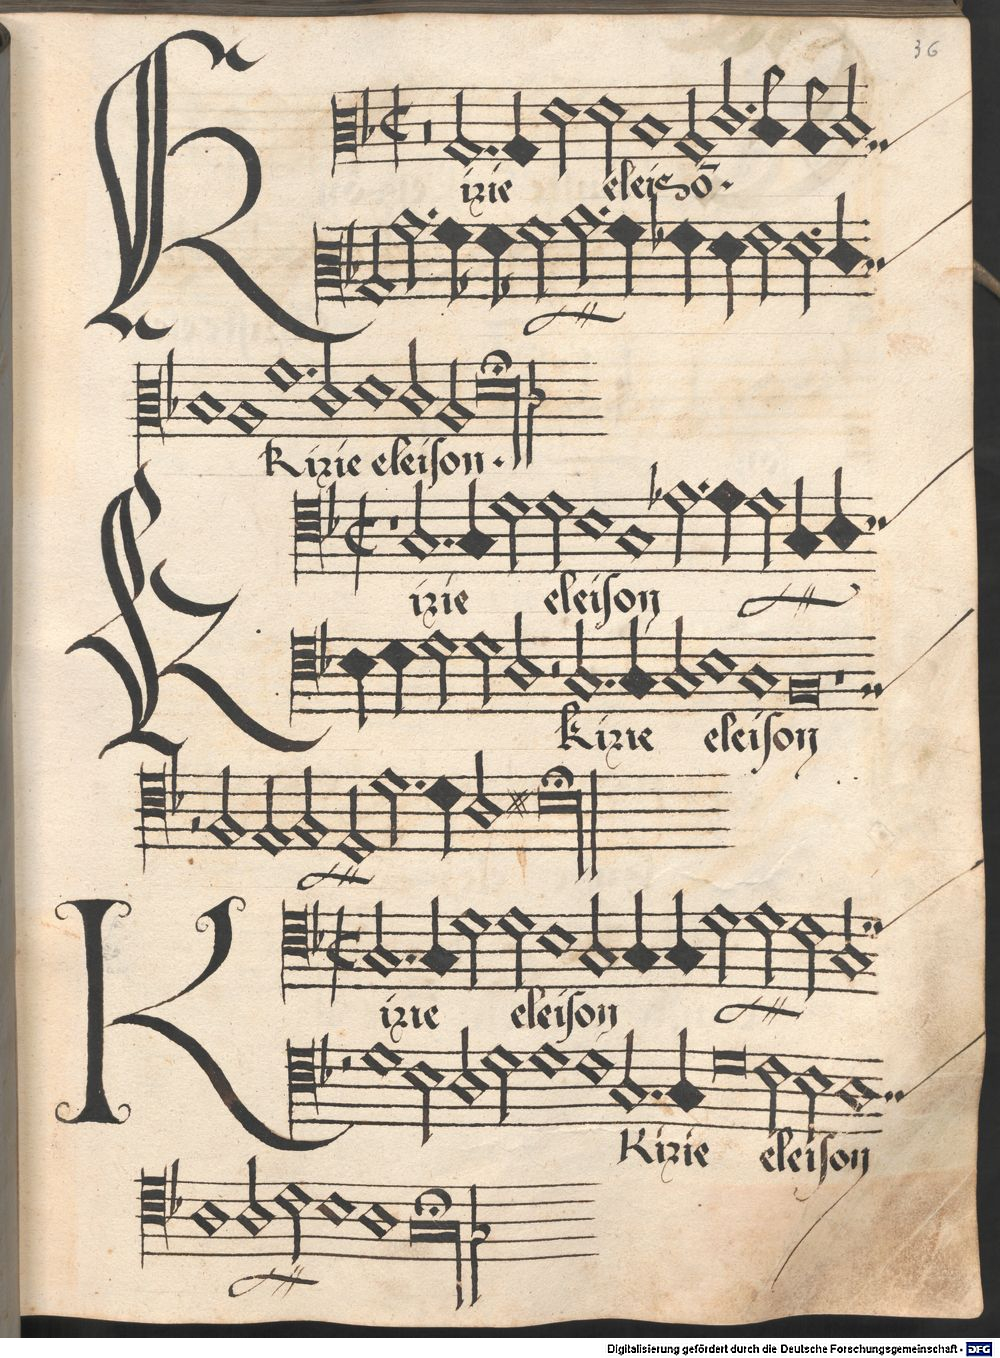 36
Kirie eleisō.
Kirie eleison.
Kirie eleison
Kirie eleison
Kirie eleison
Kirie eleison
Digitalisierung gefördert durch die Deutsche Forschungsgemeinschaft - DFG